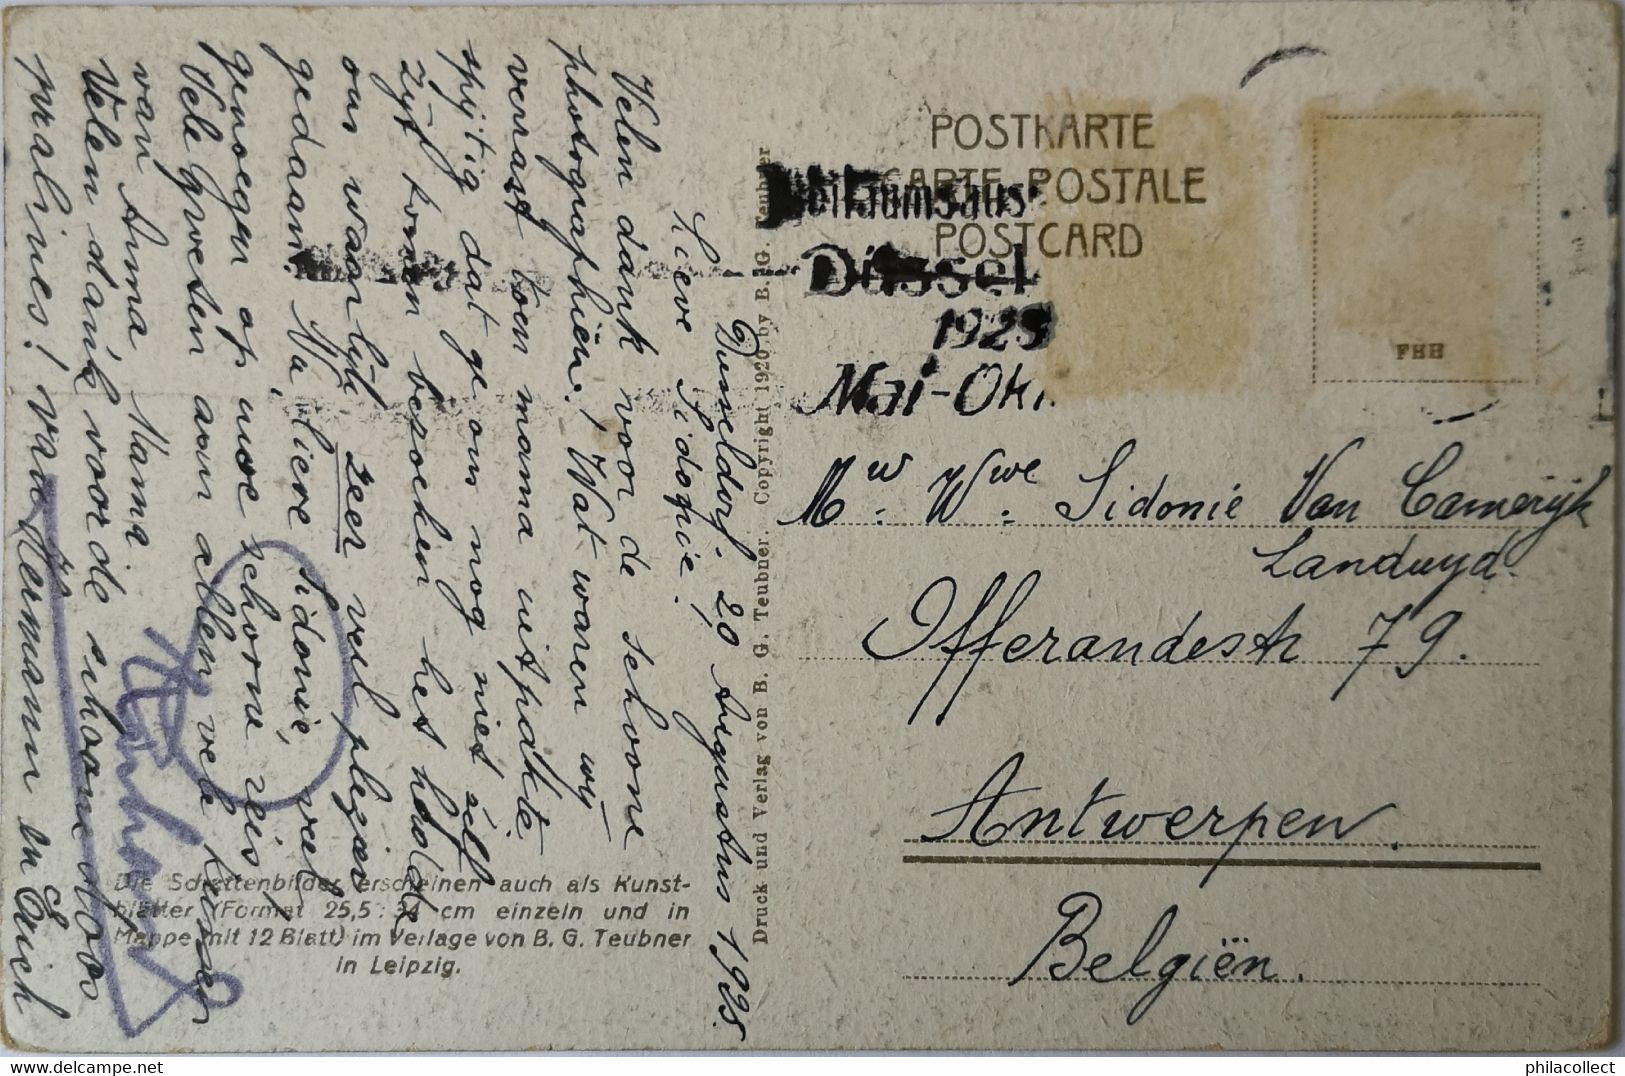 POSTKARTE
CARTE POSTALE
POSTCARD
Düssel
1925
Mai-Okt
FHH
Mw. Wwe. Sidonie Van Camerijk
Landuyd.
Offerandestr 79.
Antwerpen.
Belgiën.
Dusseldorf. 20 Augustus 1925.
Lieve Sidonie!
Velen dank voor de schoone
photographiën! Wat waren wy
verrast toen mama uitpakte.
spijtig dat ge ons nog niet zelf
zyt komen bezoeken het hadde
ons waarlijk zeer veel plezier
gedaan. Na, lieve Sidonie, veel
genoegen op uwe schone reis!
Vele groesen aan allen vele kussen
van Anna Mama
Velen dank voor de schoone
pralines! van Hermann en Erich
Die Schattenbilder erscheinen auch als Kunst-
blätter (Format 25,5 : 34 cm einzeln und in
Mappe mit 12 Blatt) im Verlage von B. G. Teubner
in Leipzig.
Druck und Verlag von B. G. Teubner. Copyright 1920 by B. G. Teubner
philacollect